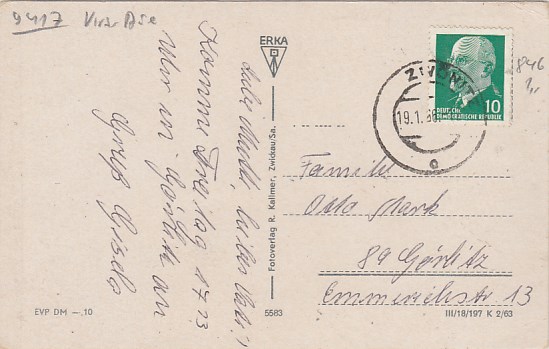 9417
ERKA
Liebe Mutti, lieber Vati!
Komme Freitag 17.23
Uhr in Görlitz an.
Gruß Gisela
EVP DM —,10
Fotoverlag R. Kallmer, Zwickau/Sa.
5583
ZWÖNITZ
19.1.66
c
10
DEUTSCHE
DEMOKRATISCHE REPUBLIK
846
Familie
Otto Mark
89 Görlitz
Emmerichstr. 13
III/18/197 K 2/63